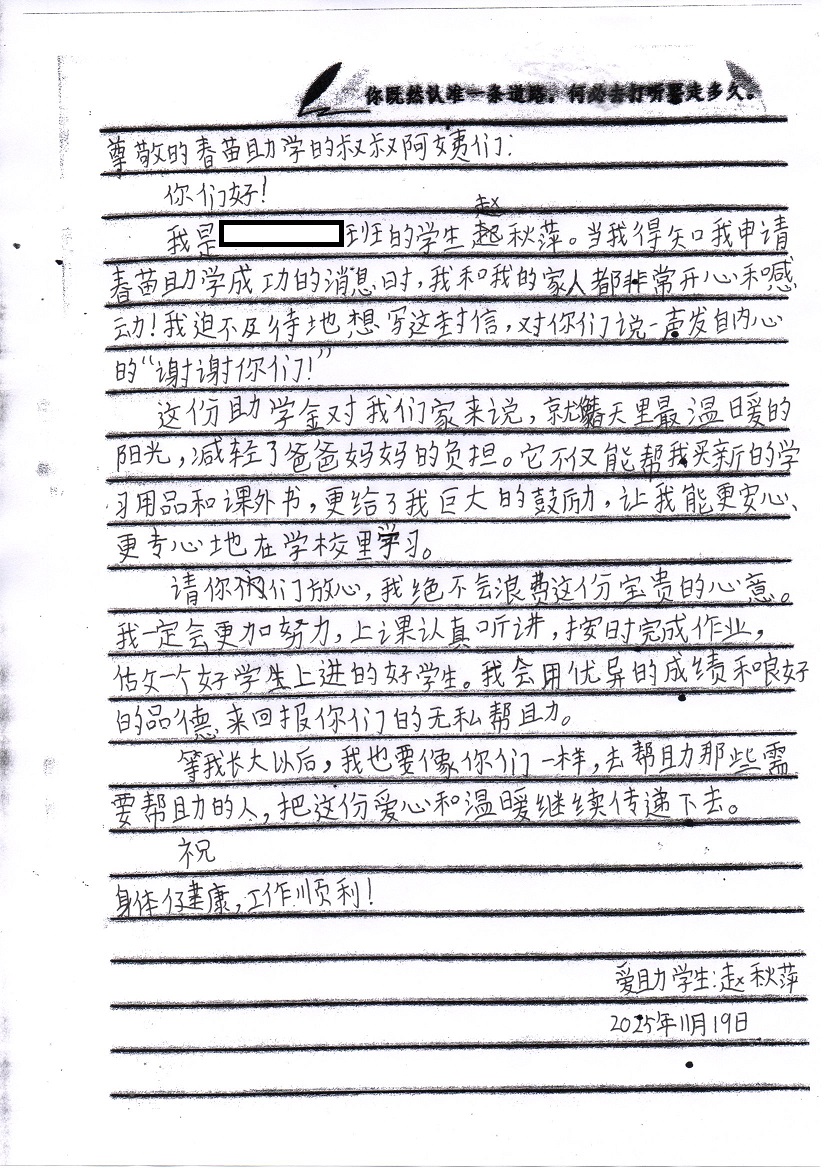 你既然认准一条道路，何必去打听要走多久。
尊敬的春苗助学的叔叔阿姨们：
你们好！
赵
我是班的学生赵秋萍。当我得知我申请
春苗助学成功的消息时，我和我的家人都非常开心和感
动！我迫不及待地想写这封信，对你们说一声发自内心
的“谢谢你们！”
这份助学金对我们家来说，就像春天里最温暖的
阳光，减轻了爸爸妈妈的负担。它不仅能帮我买新的学
习用品和课外书，更给了我巨大的鼓励，让我能更安心、
更专心地在学校里学习。
请你们放心，我绝不会浪费这份宝贵的心意。
我一定会更加努力，上课认真听讲，按时完成作业，
做一个好学生上进的好学生。我会用优异的成绩和良好
的品德来回报你们的无私帮助。
等我长大以后，我也要像你们一样，去帮助那些需
要帮助的人，把这份爱心和温暖继续传递下去。
祝
身体健康，工作顺利！
爱助学生：赵秋萍
2025年11月19日